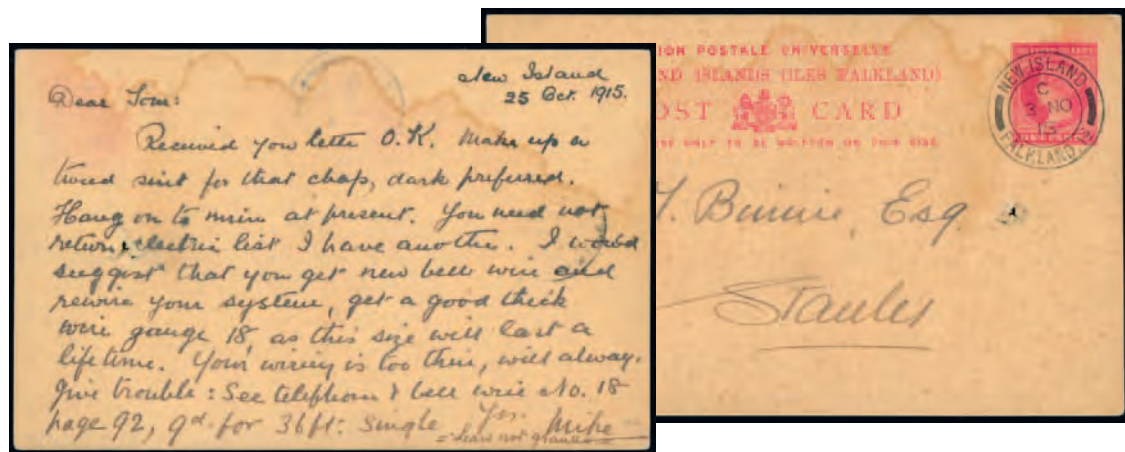 New Island
25 Oct. 1915.
Dear Tom:
Received your letter O.K. Make up a
tweed suit for that chap, dark preferred.
Hang on to mine at present. You need not
return electric list I have another. I would
suggest that you get new bell wire and
rewire your system, get a good thick
wire gauge 18 as this size will last a
life time. Your wiring is too thin, will alway.
Give trouble: See telephone & bell wire No. 18
page 92, 9d. for 36ft: single Yrs. Mike
= leave not granted =
ION POSTALE UNIVERSELLE
ND ISLANDS (ILES FALKLAND)
OST CARD
ONLY TO BE WRITTEN ON THIS SIDE.
NEW ISLAND
C
3 NO
15
FALKLAND IS
T. Binnie, Esq
Stanley